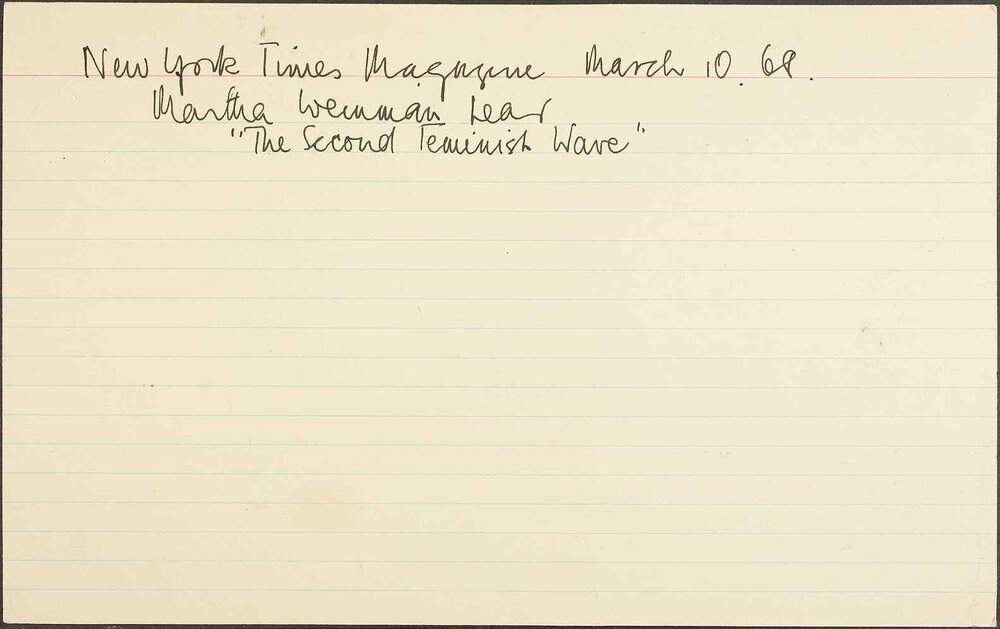 New York Times Magazine March 10. 68.
Martha Weinman Lear
"The Second Feminist Wave"